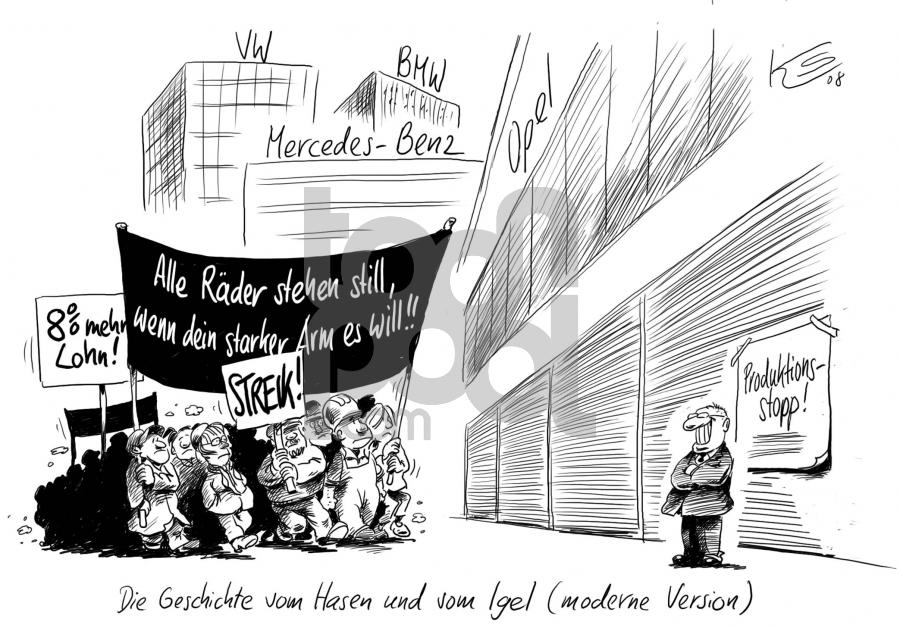 VW
BMW
Mercedes-Benz
Opel
KS
08
Alle Räder stehen still,
wenn dein starker Arm es will!!
8% mehr
Lohn!
STREIK!
Produktions-
stopp!
toon
pool
.com
Die Geschichte vom Hasen und vom Igel (moderne Version)